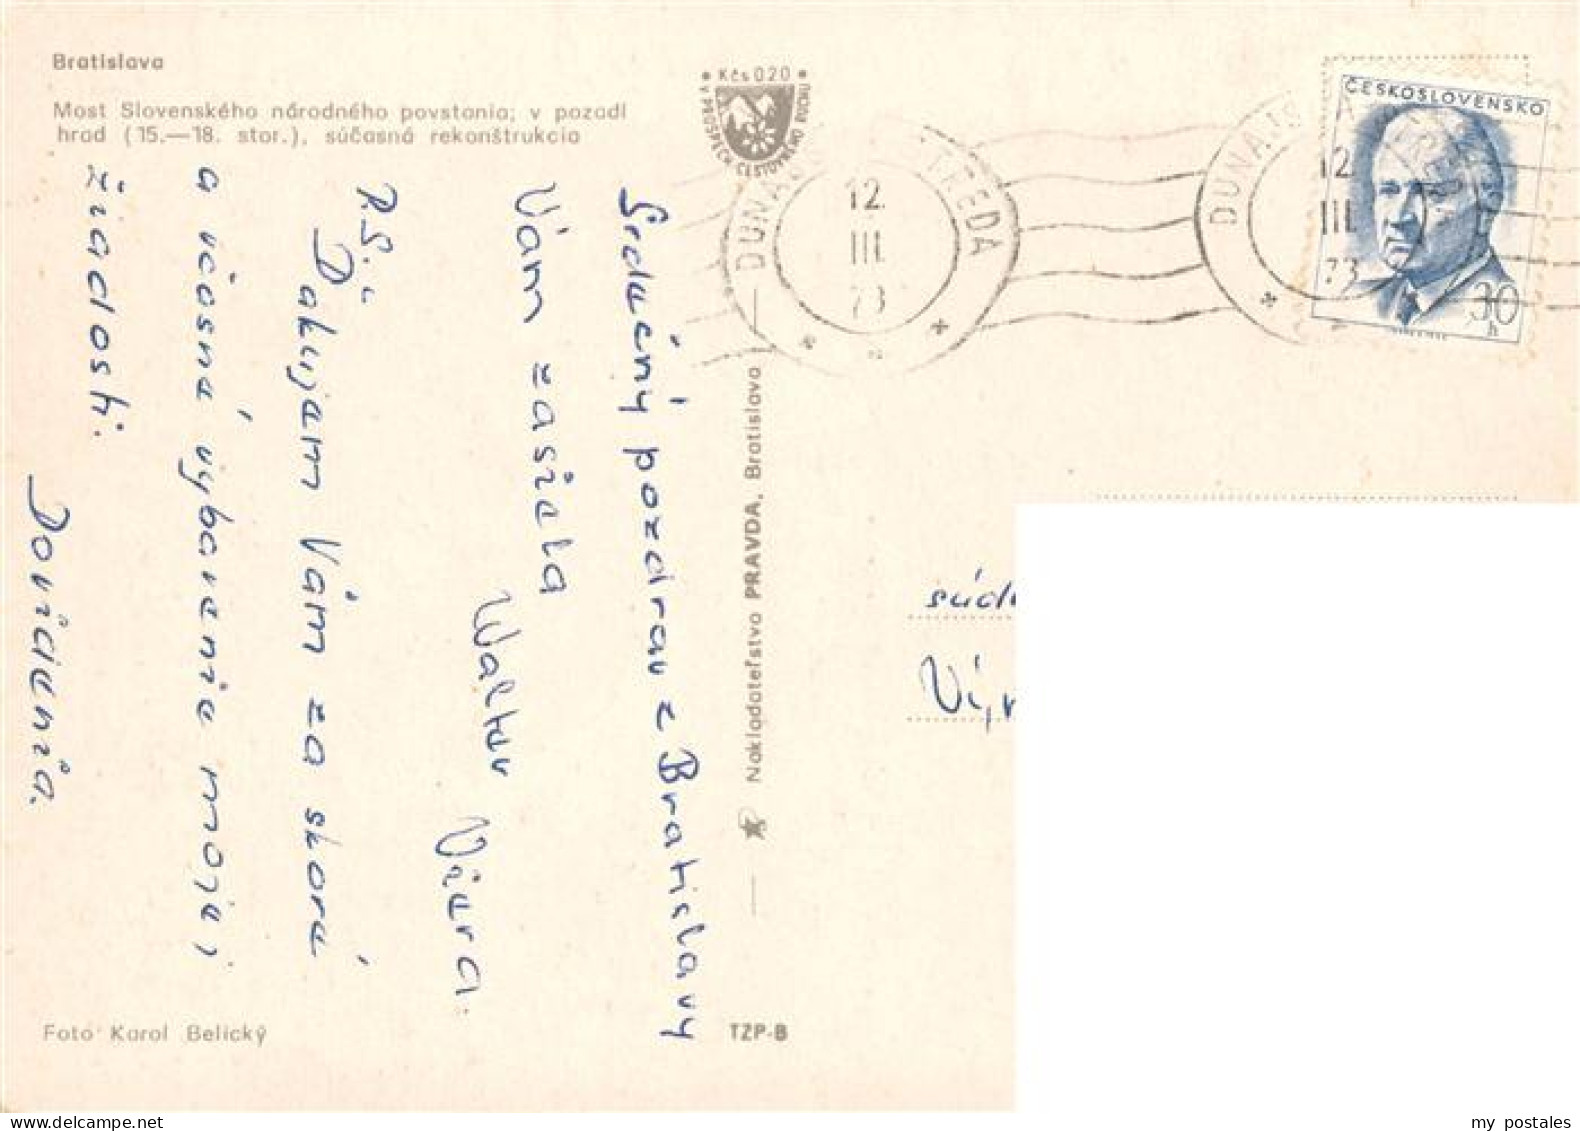 Bratislava
Most Slovenského národného povstania; v pozadí
hrad (15.—18. stor.), súčasná rekonštrukcia
• Kčs 020 •
V PROSPECH CESTOVNÉHO RUCHU
DUNAJSKÁ STREDA
12.
III.
73
DUNAJSKÁ STREDA
12.
III.
73
ČESKOSLOVENSKO
30
h
Srdečný pozdrav z Bratislavy
Vám zasiela
Walter Viera.
P.S.:
Ďakujem Vám za skoré
a včasné vybavenie mojej
žiadosti.
Dovidenia.
Nakladateľstvo PRAVDA, Bratislava
súd
Foto Karol Belický
TZP-B
my postales